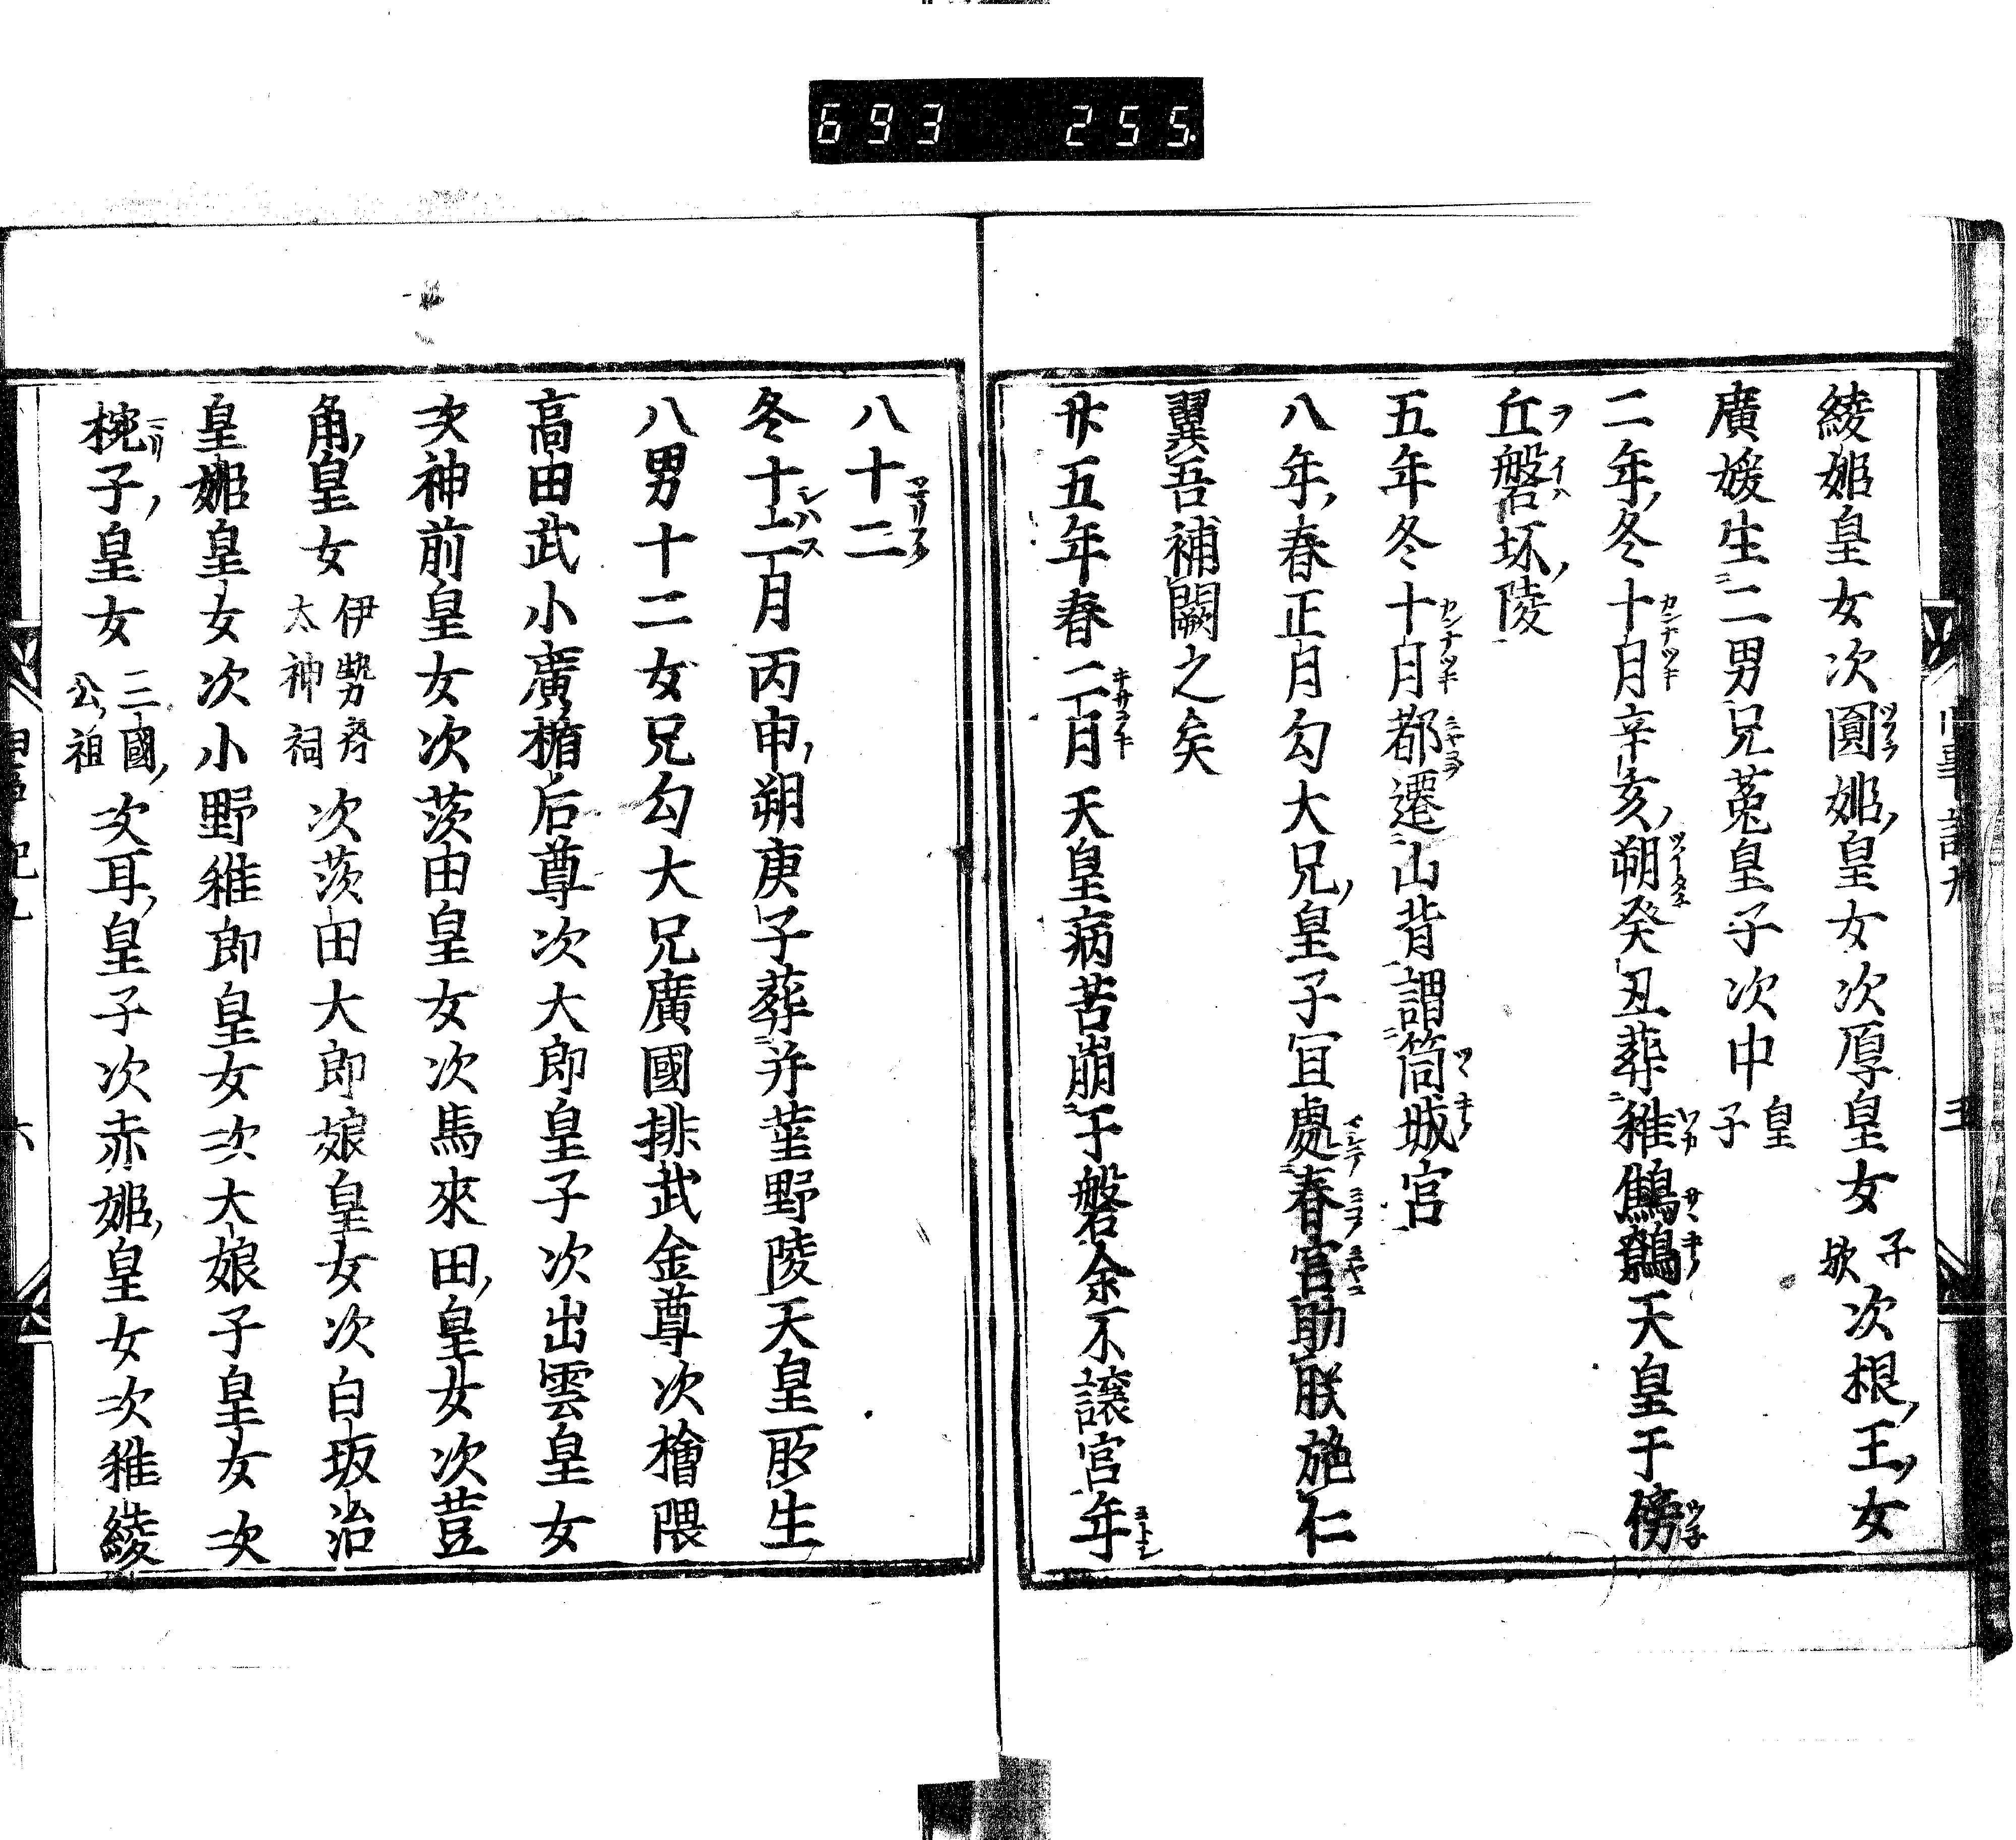 693 255.
綾姫皇女次圓姫皇女次厚皇女子歟次根王女
廣媛生二男兄菟皇子次中皇子
二年冬十月辛亥朔癸丑葬稚鷦鷯天皇于傍
丘磐坏陵
五年冬十月都遷山背謂筒城宮
八年春正月勾大兄皇子宜處春宮助朕施仁
翼吾補闕之矣
廿五年春二月天皇病苦崩于磐余不讓宮年
八十二
冬十二月丙申朔庚子葬并莖野陵天皇所生
八男十二女兄勾大兄廣國排武金尊次檜隈
高田武小廣楯后尊次大郎皇子次出雲皇女
次神前皇女次茨田皇女次馬來田皇女次荳
角皇女伊勢齋太神祠次茨田大郎娘皇女次白坂治
皇姫皇女次小野稚郎皇女次大娘子皇女次
椀子皇女三國公祖次耳皇子次赤姫皇女次稚綾